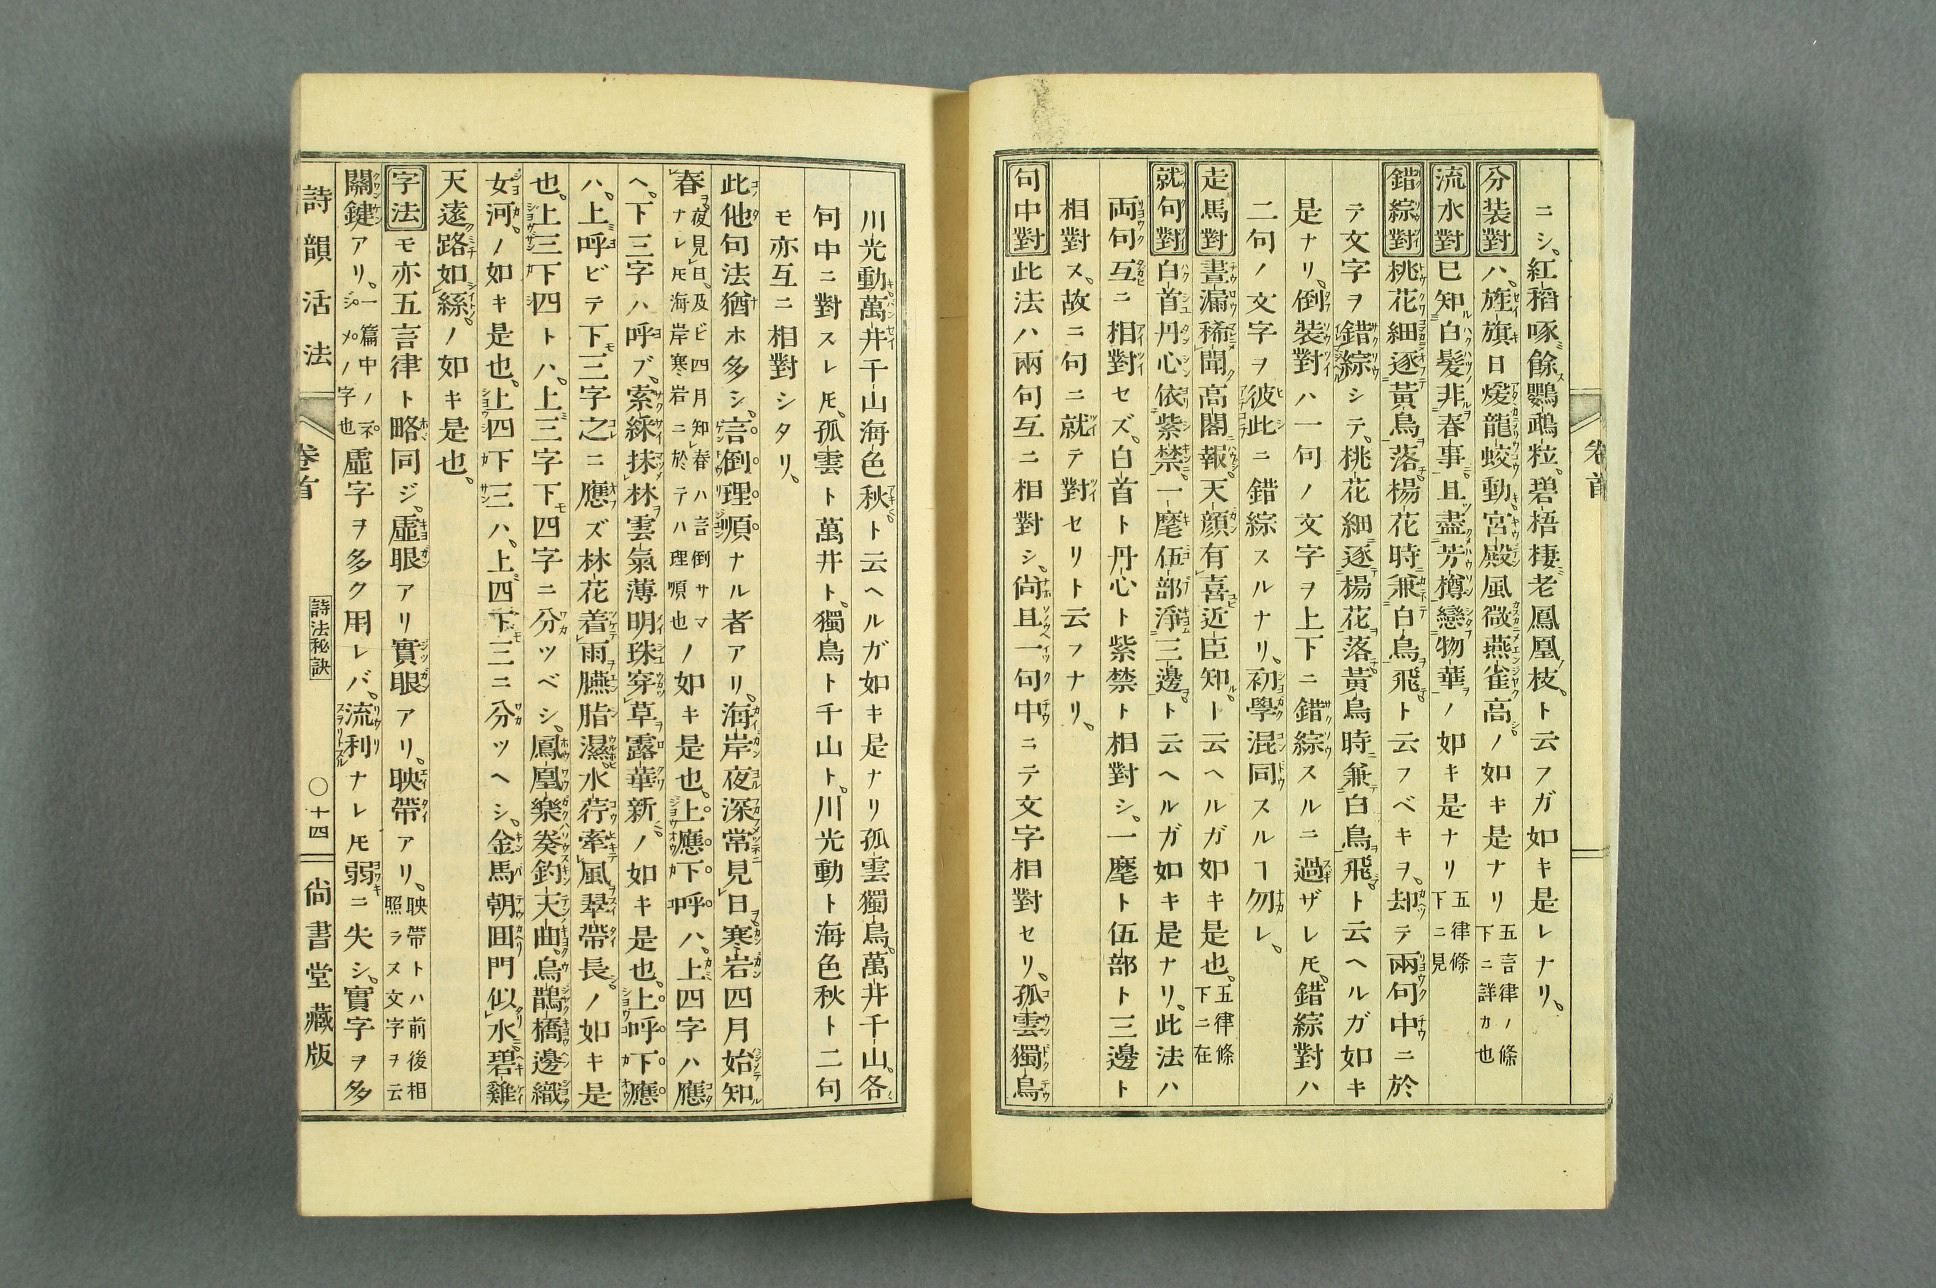 ニシ、紅稻啄餘鸚鵡粒。碧梧棲老鳳凰枝。ト云フガ如キ是レナリ。
分装對ハ、旌旗日煖龍蛇動。宮殿風微燕雀高。ノ如キ是ナリ五言律ノ條下ニ詳カ也
流水對巳知白髮非春事。且盡芳樽戀物華。ノ如キ是ナリ五律條下ニ見
錯綜對桃花細逐黃鳥落。楊花時兼白鳥飛。ト云フベキヲ、却テ兩句中ニ於
テ文字ヲ錯綜シテ、桃花細逐楊花落。黃鳥時兼白鳥飛。ト云ヘルガ如キ
是ナリ。倒装對ハ一句ノ文字ヲ上下ニ錯綜スルニ過ザレ𪜈、錯綜對ハ
二句ノ文字ヲ彼此ニ錯綜スルナリ。初學混同スルヿ勿レ。
走馬對晝漏稀聞高閣報。天顔有喜近臣知。ト云ヘルガ如キ是也。五律條下ニ在
就句對白首丹心依紫禁。一麾伍部淨三邊。ト云ヘルガ如キ是ナリ。此法ハ
両句互ニ相對セズ、白首ト丹心ト紫禁ト相對シ、一麾ト伍部ト三邊ト
相對ス。故ニ句ニ就テ對セリト云フナリ。
句中對此法ハ兩句互ニ相對シ、尙且一句中ニテ文字相對セリ。孤雲獨鳥
卷首
川光動萬井千山海色秋。ト云ヘルガ如キ是ナリ孤雲獨鳥。萬井千山。各
句中ニ對スレ𪜈、孤雲ト萬井ト、獨鳥ト千山ト、川光動ト海色秋ト二句
モ亦互ニ相對シタリ。
此他句法猶ホ多シ、言倒理順ナル者アリ。海岸夜深常見日。寒岩四月始知
春。夜見日、及ビ四月知春ハ言倒サマナレ𪜈海岸寒岩ニ於テハ理順也ノ如キ是也。上應下呼ハ、上四字ハ應
ヘ、下三字ハ呼ブ、索綵抹林雲氣薄明珠穿草露華新。ノ如キ是也。上呼下應
ハ、上呼ビテ下三字之ニ應ズ林花着雨臙脂濕水荇牽風翠帶長。ノ如キ是
也。上三下四トハ、上三字下四字ニ分ツベシ、鳳凰樂奏釣天曲。烏鵲橋邊織
女河。ノ如キ是也。上四下三ハ、上四下三ニ分ツヘシ、金馬朝囬門似水碧雞
天遠路如絲。ノ如キ是也。
字法モ亦五言律ト略同ジ、虛眼アリ實眼アリ、映帶アリ、映帶トハ前後相照ラス文字ヲ云
關鍵アリ、一篇中ノシメノ字也虛字ヲ多ク用レバ、流利ナレ𪜈弱ニ失シ、實字ヲ多
詩韻活法 卷首 詩法秘訣 〇十四 尙書堂藏版